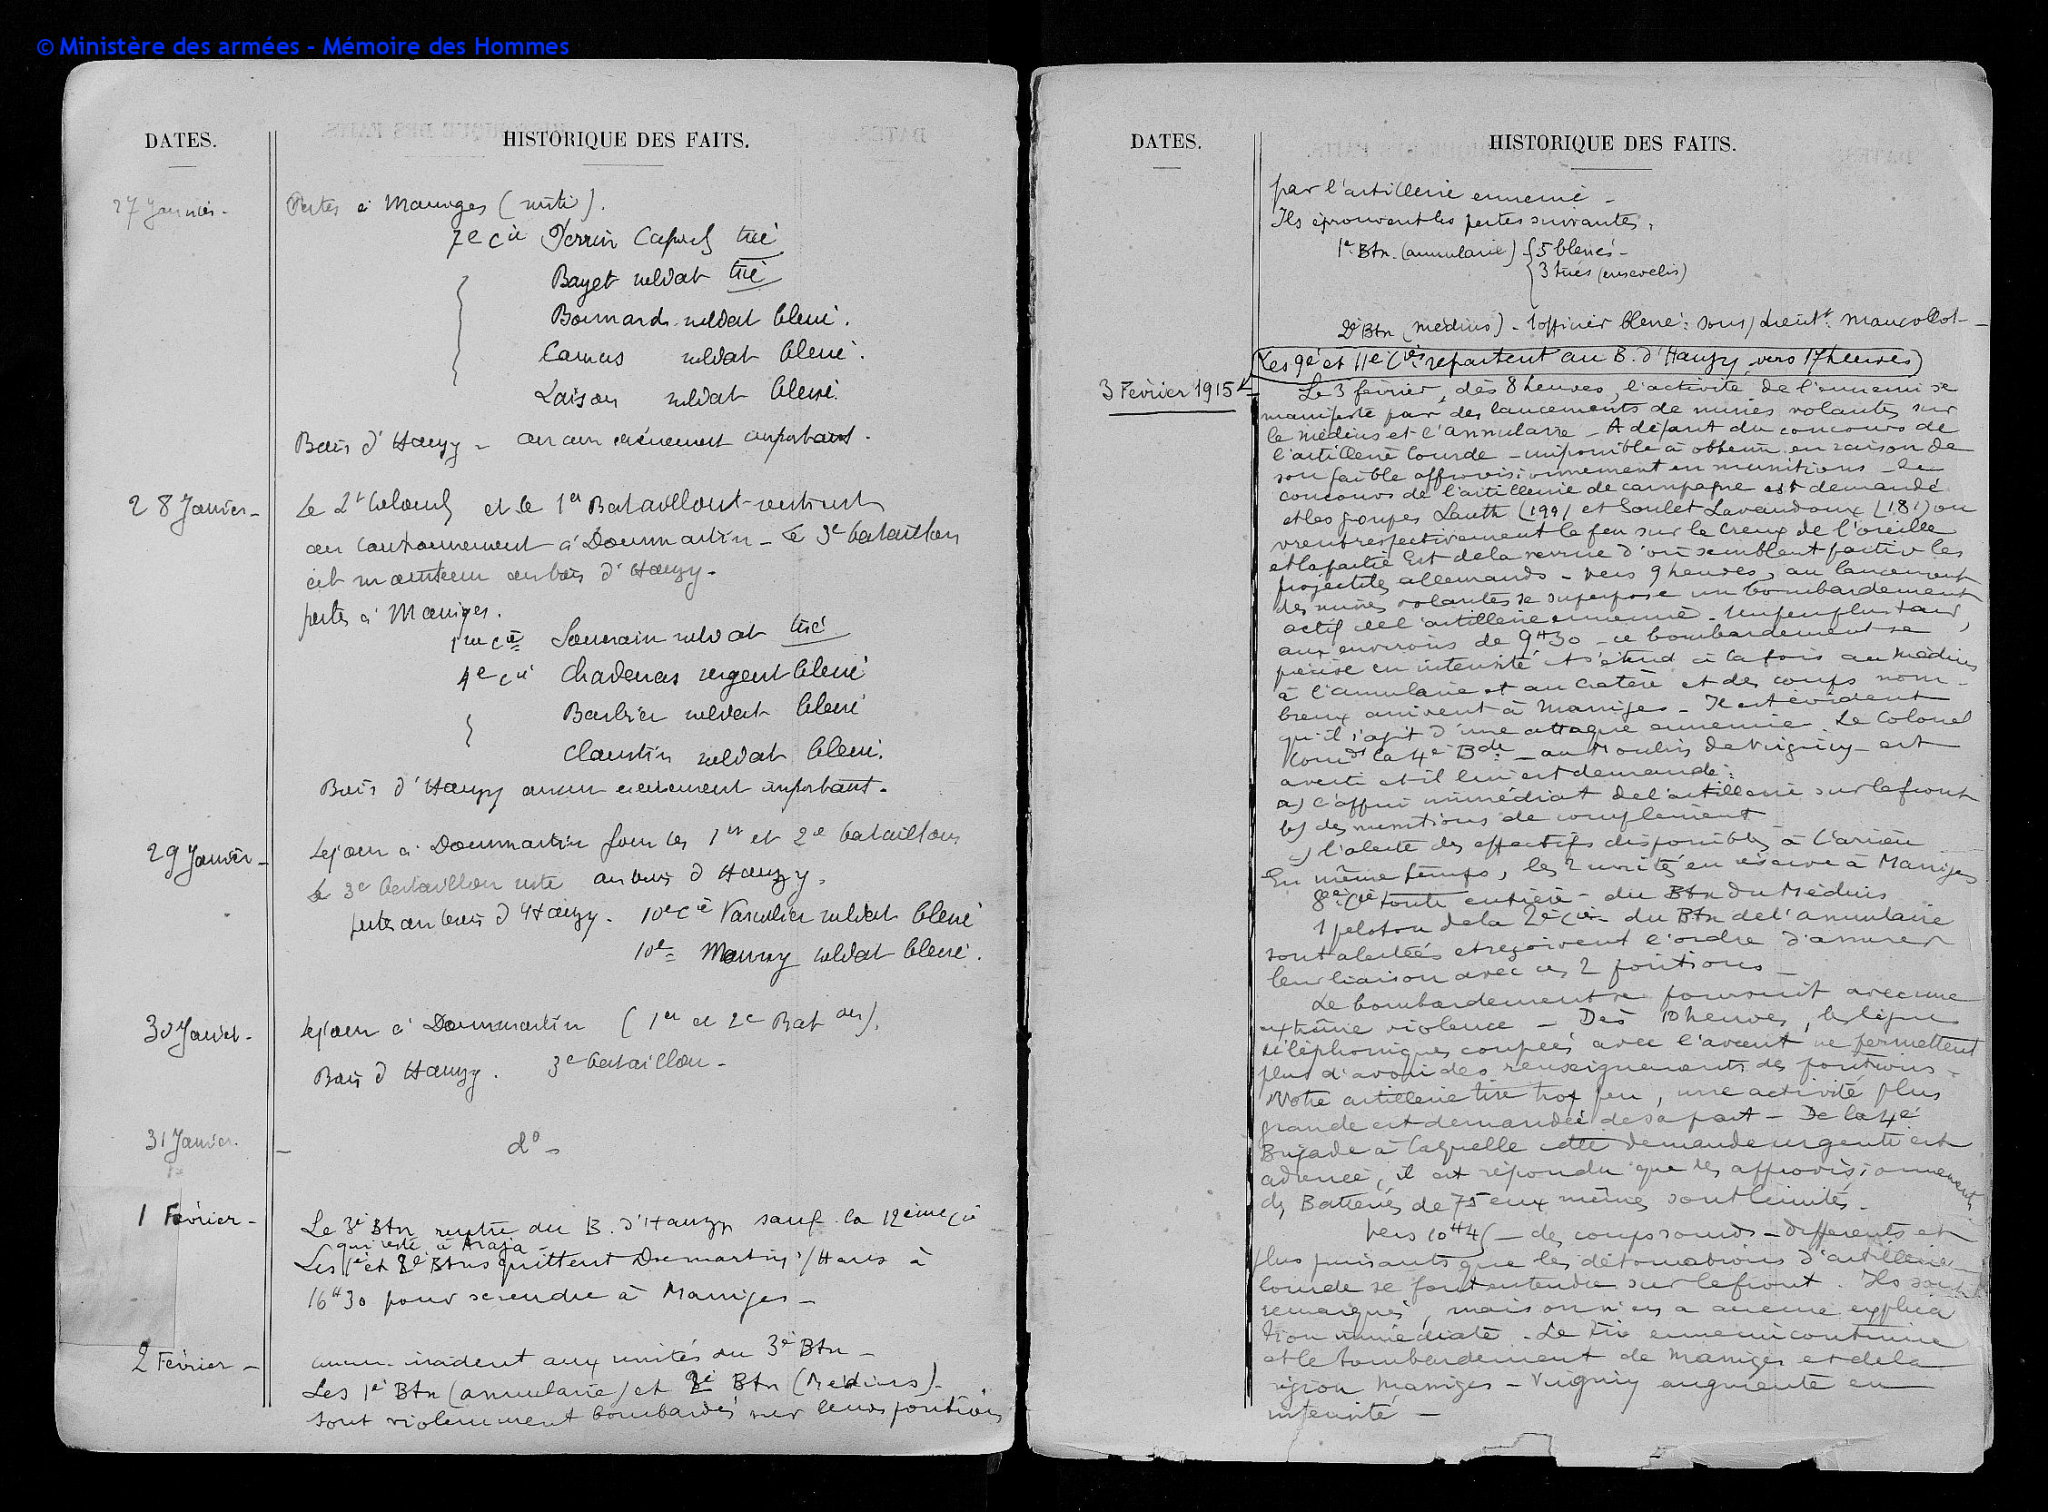 © Ministère des armées - Mémoire des Hommes
DATES.
HISTORIQUE DES FAITS.
27 Janvier - Pertes à Massiges (suite).
7e Cie Perrin Caporal tué
Bayet soldat tué
Bonnard soldat blessé.
Camus soldat blessé.
Laison soldat blessé.
Bois d'Hauzy - aucun évènement important.
28 Janvier - Le Lt Colonel et le 1er Bataillon rentrent
au cantonnement à Dommartin - Le 3e bataillon
est maintenu au bois d'Hauzy.
pertes à Massiges.
1re Cie soldat tué
4e Cie Chadenas sergent blessé
Barbier soldat blessé
Claustin soldat blessé.
Bois d'Hauzy aucun évènement important.
29 Janvier - Séjour à Dommartin pour les 1er et 2e bataillons
Le 3e bataillon reste au bois d'Hauzy.
pertes au bois d'Hauzy. 10e Cie soldat blessé
10e = Maury soldat blessé.
30 Janvier - Séjour à Dommartin (1er et 2e Batons).
Bois d'Hauzy. 3e bataillon -
31 Janvier. - do -
1 Février - Le 3e Btn rentre du B. d'Hauzy sauf la 12ème Cie
qui reste à Araja
Les 1e et 2e Btns quittent Dommartin s/ Hans à
16H30 pour se rendre à Massiges -
2 Février - aucun incident aux unités du 3e Btn -
Les 1e Btn (annulaire) et 2e Btn (Médius) -
sont violemment bombardés sur leurs positions
DATES.
HISTORIQUE DES FAITS.
par l'artillerie ennemie -
Ils éprouvent les pertes suivantes :
1e Btn. (annulaire) { 5 blessés -
3 tués (ensevelis)
2e Btn (médius) - 1 officier blessé : sous/lieutt.
Les 9e et 11e Cies repartent au B. d'Hauzy vers 17 heures
3 Février 1915 - Le 3 février, dès 8 heures, l'activité de l'ennemi se
manifeste par des lancements de mines volantes sur
le médius et l'annulaire - A départ du concours de
l'artillerie lourde - impossible à obtenir en raison de
son faible approvisionnement en munitions - le
concours de l'artillerie de campagne est demandé
et les groupes Lauth (199) et Soulet Lavandoux (181) ou
vrent respectivement le feu sur le creux de l'oreille
et la partie Est de la verrue d'où semblent partir les
projectiles allemands - Vers 9 heures, au lancement
des mines volantes se superpose un bombardement
actif de l'artillerie ennemie - Un peu plus tard,
aux environs de 9H30 - ce bombardement se
précise en intensité et s'étend à la fois au Médius
à l'annulaire et au Cratère et des coups nom-
breux arrivent à Massiges - Il est évident
qu'il s'agit d'une attaque ennemie. Le Colonel
Comdt la 4e Bde - au Moulin de Virginy - est
averti et il lui est demandé :
a) l'appui immédiat de l'artillerie sur le front
b) des munitions de complément
c) l'alerte des effectifs disponibles à l'arrière
En même temps, les 2 unités en réserve à Massiges
8e Cie toute entière - du Btn du Médius
1 peloton de la 2e Cie - du Btn de l'annulaire
sont alertées et reçoivent l'ordre d'assurer
leur liaison avec ces 2 positions -
Le bombardement se poursuit avec une
extrême violence - Dès 10 heures, les lignes
téléphoniques coupées avec l'avant ne permettent
plus d'avoir des renseignements des positions -
Notre artillerie tire trop peu, une activité plus
grande est demandée de sa part - De la 4e
Brigade à laquelle cette demande urgente est
adressée, il est répondu que les approvisionnements
des Batteries de 75 eux mêmes sont limités.
Vers 10H45 - des coups sourds - différents et
plus puissants que les détonations d'artillerie
lourde se font entendre sur le front. Ils sont
remarqués, mais on n'en a aucune explica
tion immédiate - Le tir ennemi continue
et le bombardement de Massiges et de la
région Massiges - Virginy augmente en
intensité -